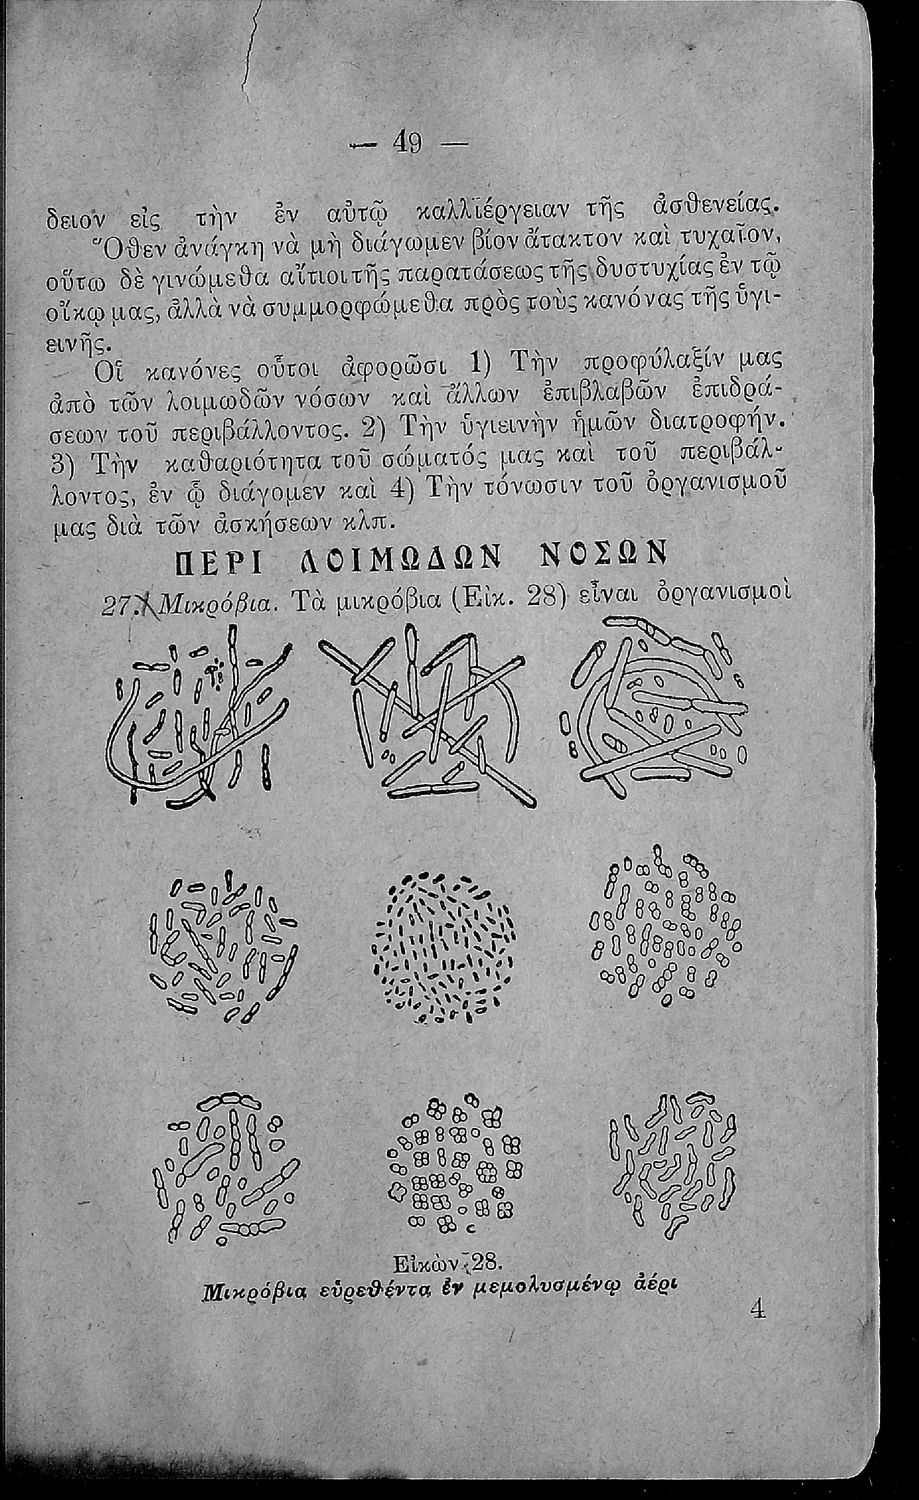 — 49 —
δειον εἰς τὴν ἐν αὐτῷ καλλιέργειαν τῆς ἀσθενείας.
Ὅθεν ἀνάγκη νὰ μὴ διάγωμεν βίον ἄτακτον καὶ τυχαῖον,
οὕτω δὲ γινώμεθα αἴτιοι τῆς παρατάσεως τῆς δυστυχίας ἐν τῷ
οἴκῳ μας, ἀλλὰ νὰ συμμορφώμεθα πρὸς τοὺς κανόνας τῆς ὑγι-
εινῆς.
Οἱ κανόνες οὗτοι ἀφορῶσι 1) Τὴν προφύλαξίν μας
ἀπὸ τῶν λοιμωδῶν νόσων καὶ ἄλλων ἐπιβλαβῶν ἐπιδρά-
σεων τοῦ περιβάλλοντος. 2) Τὴν ὑγιεινὴν ἡμῶν διατροφήν.
3) Τὴν καθαριότητα τοῦ σώματός μας καὶ τοῦ περιβάλ-
λοντος, ἐν ᾧ διάγομεν καὶ 4) Τὴν τόνωσιν τοῦ ὀργανισμοῦ
μας διὰ τῶν ἀσκήσεων κλπ.
ΠΕΡΙ ΛΟΙΜΩΔΩΝ ΝΟΣΩΝ
27. Μικρόβια. Τὰ μικρόβια (Εἰκ. 28) εἶναι ὀργανισμοὶ
Εἰκὼν 28.
Μικρόβια εὑρεθέντα ἐν μεμολυσμένῳ ἀέρι
4